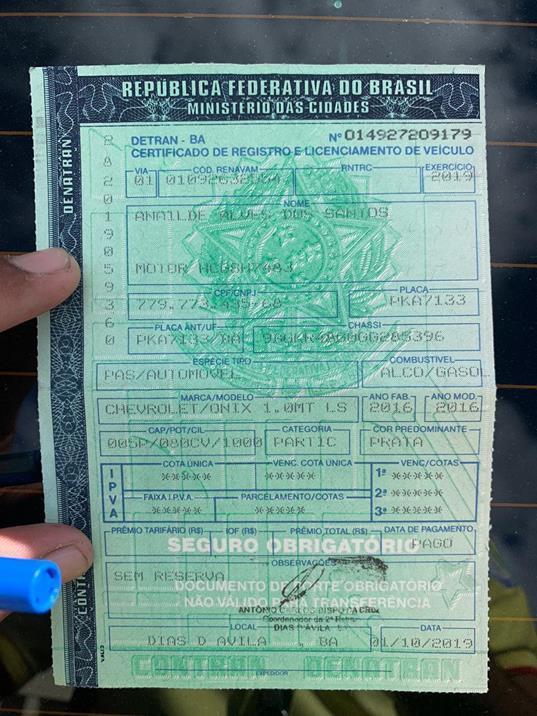 REPÚBLICA FEDERATIVA DO BRASIL
MINISTÉRIO DAS CIDADES
DENATRAN
DETRAN - BA Nº 014927209179
CERTIFICADO DE REGISTRO E LICENCIAMENTO DE VEÍCULO
VIA CÓD. RENAVAM RNTRC EXERCÍCIO
01 2019
NOME
ANAILDE ALVES DOS SANTOS
MOTOR
CPF/CNPJ PLACA
PKA7133
PLACA ANT/UF CHASSI
PKA7133/BA
ESPÉCIE TIPO COMBUSTÍVEL
PAS/AUTOMOVEL ALCO/GASOL
MARCA/MODELO ANO FAB. ANO MOD.
CHEVROLET/ONIX 1.0MT LS 2016 2016
CAP/POT/CIL CATEGORIA COR PREDOMINANTE
005P/080CV/1000 PARTIC PRATA
IPVA
COTA ÚNICA VENC. COTA ÚNICA VENC/COTAS
***** ***** 1ª *****
FAIXA I.P.V.A. PARCELAMENTO/COTAS 2ª *****
***** ***** 3ª *****
PRÊMIO TARIFÁRIO (R$) IOF (R$) PRÊMIO TOTAL (R$) DATA DE PAGAMENTO
PAGO
SEGURO OBRIGATÓRIO
OBSERVAÇÕES
SEM RESERVA
DOCUMENTO DE PORTE OBRIGATÓRIO
NÃO VÁLIDO PARA TRANSFERÊNCIA
DIAS D'ÁVILA
LOCAL DATA
DIAS D AVILA , BA 01/10/2019
CONTRAN DENATRAN
EXPEDIDOR